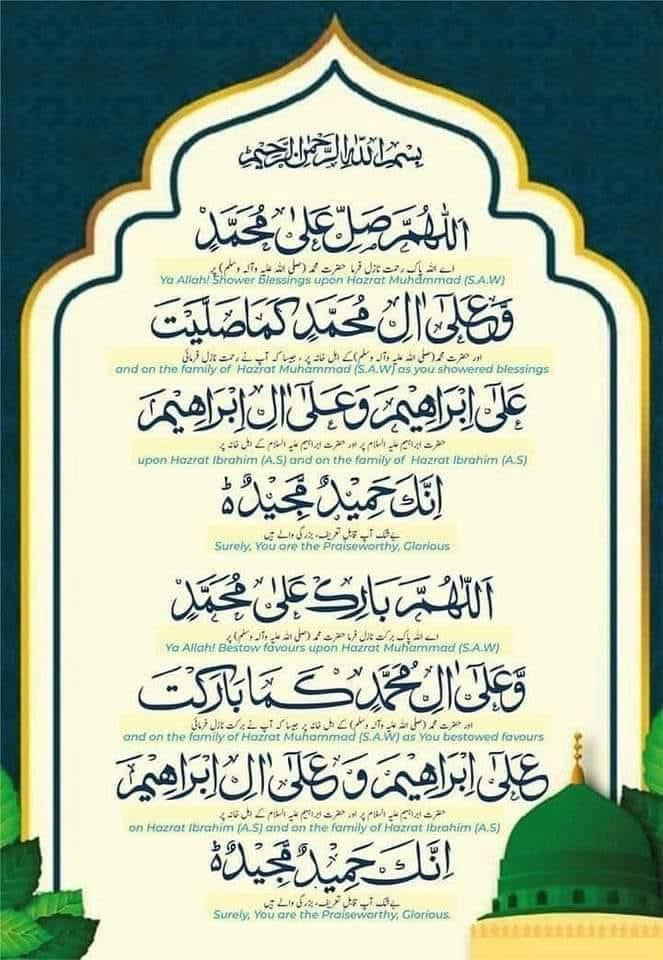 بِسْمِ اللهِ الرَّحْمٰنِ الرَّحِيْمِ
اَللّٰهُمَّ صَلِّ عَلٰى مُحَمَّدٍ
اے اللہ پاک رحمت نازل فرما حضرت محمد (صلی اللہ علیہ وآلہ وسلم) پر
Ya Allah! Shower blessings upon Hazrat Muhammad (S.A.W)
وَّعَلٰى اٰلِ مُحَمَّدٍ كَمَا صَلَّيْتَ
اور حضرت محمد (صلی اللہ علیہ وآلہ وسلم) کے اہل خانہ پر ، جیسا کہ آپ نے رحمت نازل فرمائی
and on the family of Hazrat Muhammad (S.A.W) as you showered blessings
عَلٰى اِبْرَاهِيْمَ وَعَلٰى اٰلِ اِبْرَاهِيْمَ
حضرت ابراہیم علیہ السلام پر اور حضرت ابراہیم علیہ السلام کے اہل خانہ پر
upon Hazrat Ibrahim (A.S) and on the family of Hazrat Ibrahim (A.S)
اِنَّكَ حَمِيْدٌ مَّجِيْدٌ ہ
بےشک آپ قابل تعریف، بزرگی والے ہیں
Surely, You are the Praiseworthy, Glorious
اَللّٰهُمَّ بَارِكْ عَلٰى مُحَمَّدٍ
اے اللہ پاک برکت نازل فرما حضرت محمد (صلی اللہ علیہ وآلہ وسلم) پر
Ya Allah! Bestow favours upon Hazrat Muhammad (S.A.W)
وَّعَلٰى اٰلِ مُحَمَّدٍ كَمَا بَارَكْتَ
اور حضرت محمد (صلی اللہ علیہ وآلہ وسلم) کے اہل خانہ پر جیسا کہ آپ نے برکت نازل فرمائی
and on the family of Hazrat Muhammad (S.A.W) as You bestowed favours
عَلٰى اِبْرَاهِيْمَ وَعَلٰى اٰلِ اِبْرَاهِيْمَ
حضرت ابراہیم علیہ السلام پر اور حضرت ابراہیم علیہ السلام کے اہل خانہ پر
on Hazrat Ibrahim (A.S) and on the family of Hazrat Ibrahim (A.S)
اِنَّكَ حَمِيْدٌ مَّجِيْدٌ ہ
بےشک آپ قابل تعریف، بزرگی والے ہیں
Surely, You are the Praiseworthy, Glorious.